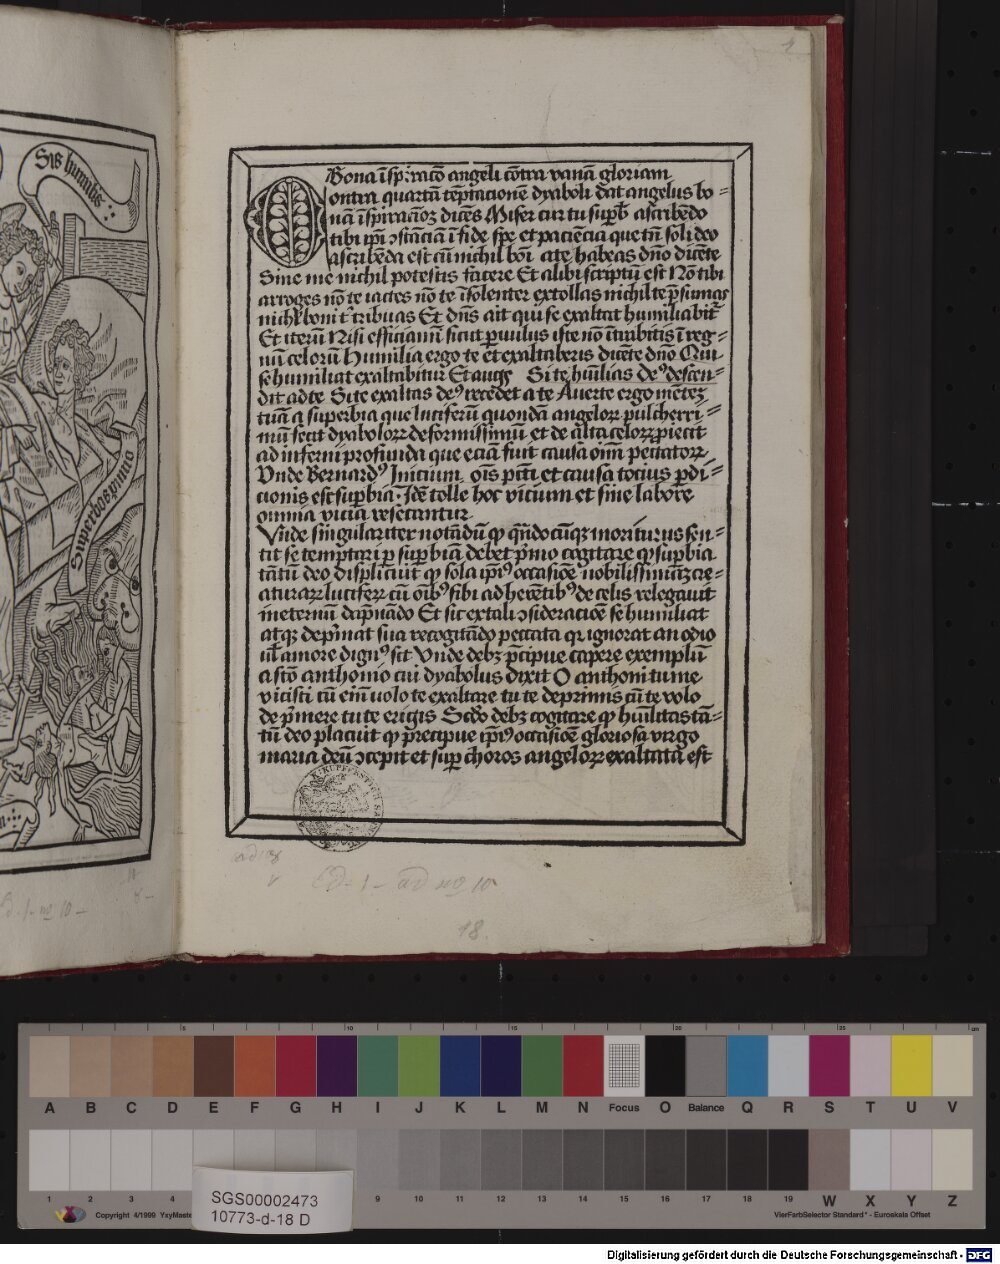 Sis humilis
Superbos punio
Bona īspiracō angeli cōtra vanā gloriam
Contra quartā tēptacionē dyaboli dat angelus bo-
nā īspiracionē dicēs Miser cur tu supbꝰ ascribēdo
tibi ipī ꝯstāciā ī fide spe et paciēcia que tn̄ soli deo
ascribēda est cū nichil boī a te habeas dn̄o dicēte
Sine me nichil potestis facere Et alibi scriptū est Nō tibi
arroges nō te iactes nō te īsolenter extollas nichil te p̄sumas
nichil boni t' tribuas Et dn̄s ait qui se exaltat humiliabit'
Et iterū Nisi efficiamī sicut puulus iste nō ītrabitis ī reg-
nū celorū Humilia ergo te et exaltaberis dicēte dn̄o Qui
se humiliat exaltabitur Et augꝰ Si te hūilias deꝰ descen-
dit ad te Si te exaltas deꝰ recedet a te Auerte ergo mētē
tuā a superbia que luciferū quondā angelorꝝ pulcherri-
mū fecit dyabolorꝝ deformissimū et de alta celorꝝ piecit
ad inferni profunda que eciā fuit causa oīm peccatorꝝ
Vnde Bernardꝰ Inicium oīs pcc̄ti et causa tocius pdi-
cionis est supbia. Idē tolle hoc vicium et sine labore
omnia vicia resecantur
Vnde singulariter notādū ꝙ qn̄docūqꝫ moriturus sen-
tit se temptari p supbiā debet p̄mo cogitare ꝙ supbia
tātū deo displicuit ꝙ sola ipīꝰ occasiōe nobilissimā cre-
aturarꝝ luciferꝝ cū oībꝰ sibi adherētibꝰ de celis relegauit
in eternū dāpnādo Et sic ex tali ꝯsideraciōe se humiliat
atqꝫ dep̄mat sua recogitādo peccata qꝛ ignorat an odio
uł amore dignꝰ sit Vnde debꝫ p̄cipue capere exemplū
a sctō anthonio cui dyabolus dixit O anthoni tu me
vicisti cū ein̄ uolo te exaltare tu te deprimis cū te volo
dep̄mere tu te erigis Scdo debꝫ cogitare ꝙ hūilitas tā-
tū deo placuit ꝙ precipue ipīꝰ occasiōe gloriosa virgo
maria deū ꝯcepit et sup choros angelorꝝ exaltata est
18.
A B C D E F G H I J K L M N Focus O Balance Q R S T U V
1 2 3 4 9 10 11 12 13 14 15 16 17 18 19 W X Y Z
Copyright 4/1999 YxyMaste
VierFarbSelector Standard* - Euroskala Offset
SGS00002473
10773-d-18 D
Digitalisierung gefördert durch die Deutsche Forschungsgemeinschaft - DFG